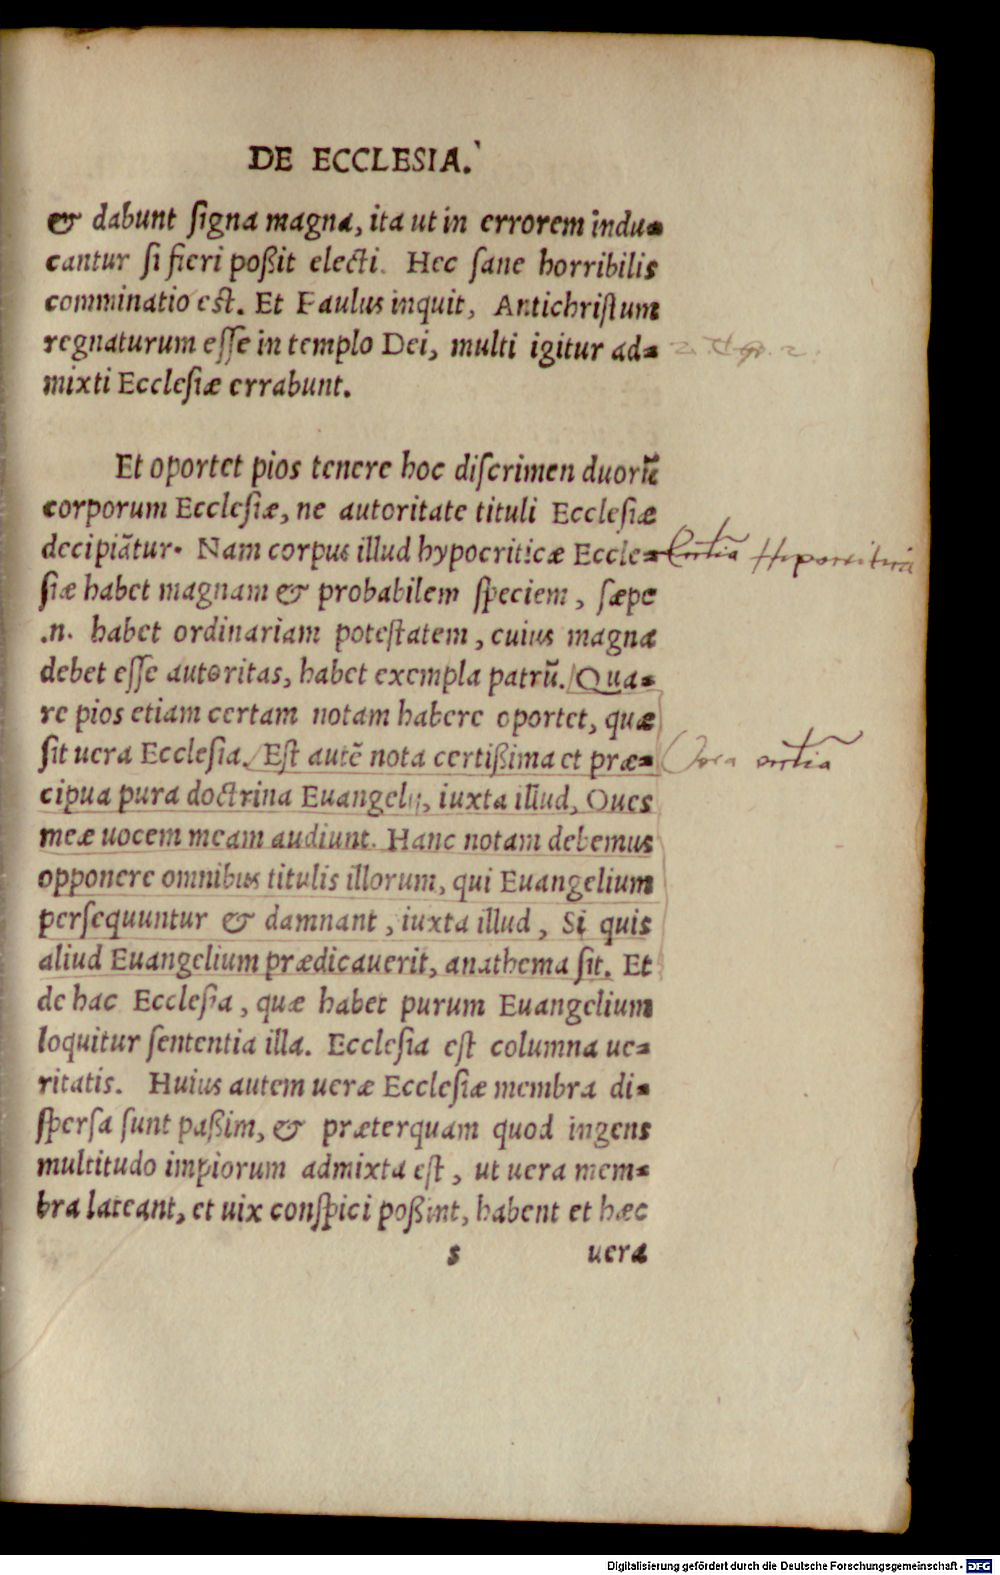 DE ECCLESIA.
& dabunt ſigna magna, ita ut in errorem indu=
cantur ſi fieri poßit electi. Hec ſane horribilis
comminatio est. Et Paulus inquit, Antichriſtum
regnaturum eſſe in templo Dei, multi igitur ad=
2. Theſ. 2.
mixti Eccleſiæ errabunt.
Et oportet pios tenere hoc diſcrimen duorū
corporum Eccleſiæ, ne autoritate tituli Eccleſiæ
decipiãtur. Nam corpus illud hypocriticæ Eccle=
ſiæ habet magnam & probabilem ſpeciem, ſæpe
.n. habet ordinariam poteſtatem, cuius magna
debet eſſe autoritas, habet exempla patrū. Qua=
re pios etiam certam notam habere oportet, quæ
ſit uera Eccleſia. Eſt autẽ nota certißima et præ=
cipua pura doctrina Euangelij, iuxta illud, Oues
meæ uocem meam audiunt. Hanc notam debemus
opponere omnibus titulis illorum, qui Euangelium
perſequuntur & damnant, iuxta illud, Si quis
aliud Euangelium prædicauerit, anathema ſit. Et
de hac Eccleſia, quæ habet purum Euangelium
loquitur ſententia illa. Eccleſia eſt columna ue=
ritatis. Huius autem ueræ Eccleſiæ membra di=
ſperſa ſunt paßim, & præterquam quod ingens
multitudo impiorum admixta eſt, ut uera mem=
bra lateant, et uix conſpici poßint, habent et hæc
s uera
Digitalisierung gefördert durch die Deutsche Forschungsgemeinschaft - DFG